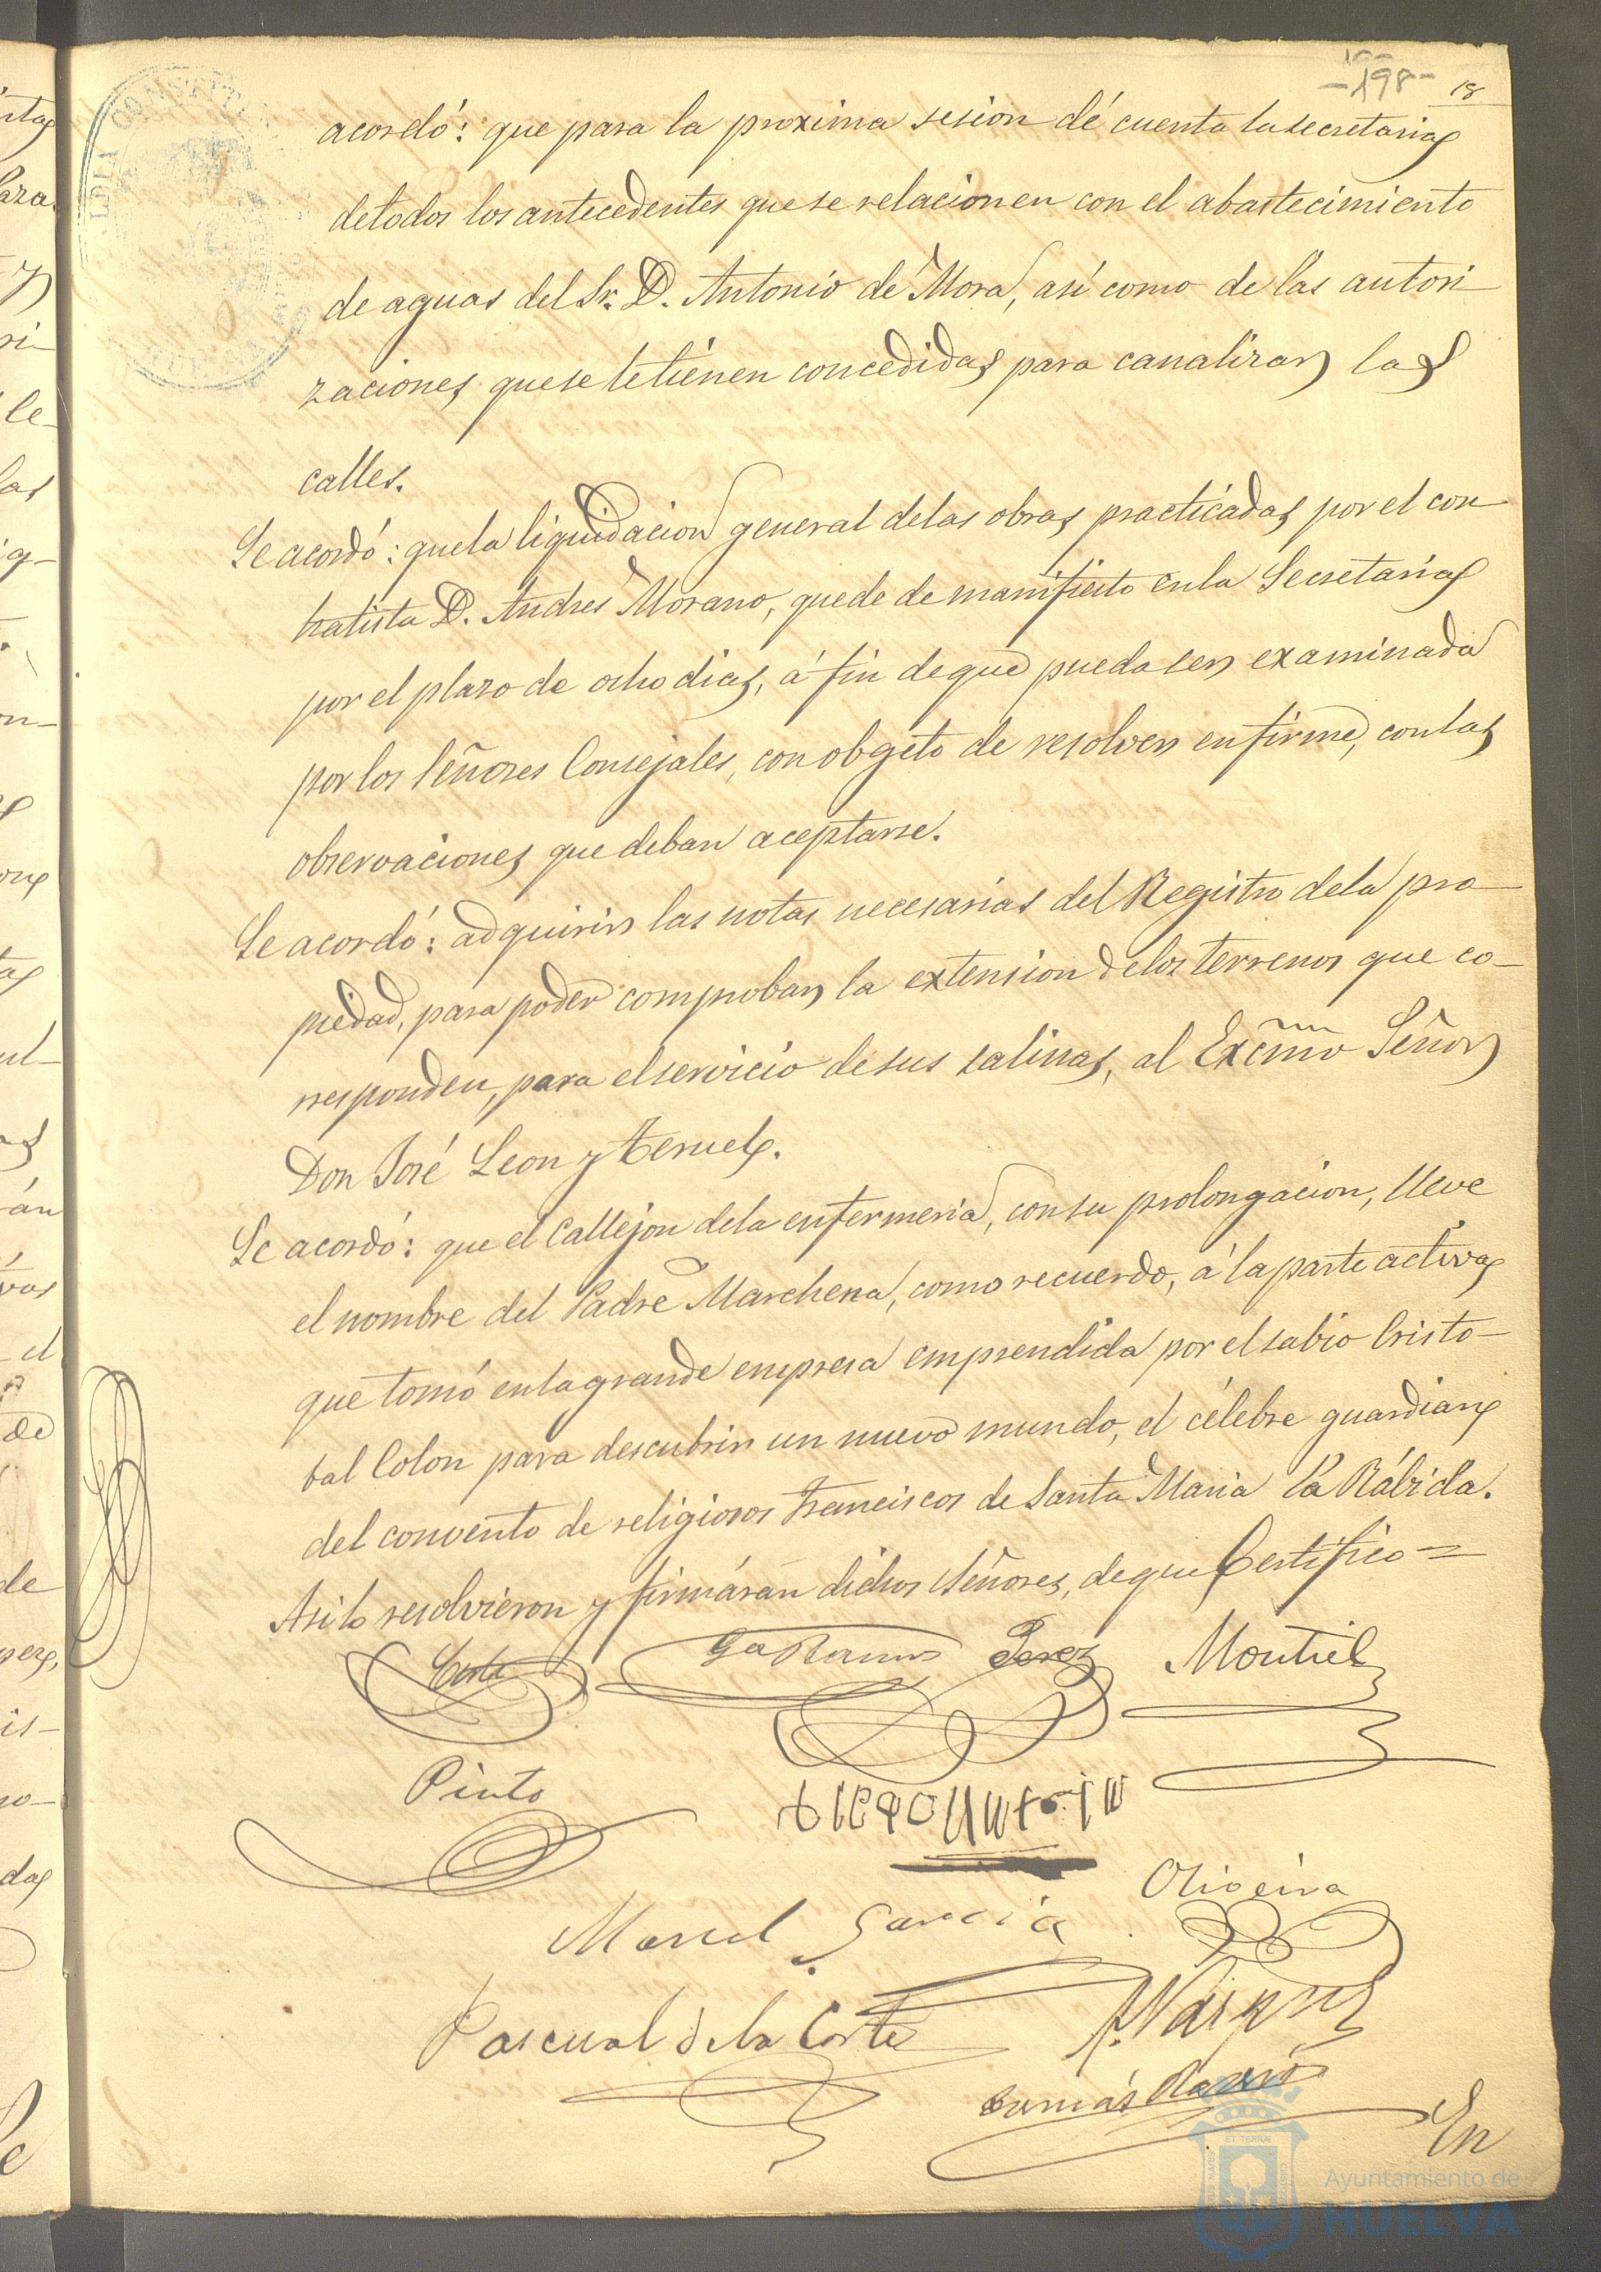 -198- 18
acordó: que para la proxima sesion dé cuenta la secretaria
de todos los antecedentes que se relacionen con el abastecimiento
de aguas del Sr. D. Antonio de Mora, asi como de las autori-
zaciones que se le tienen concedidas para canalizar las
calles.
Se acordó: que la liquidacion general de las obras practicadas por el con-
tratista D. Andres Morano, quede de manifiesto en la Secretaria
por el plazo de ocho dias, á fin de que pueda ser examinada
por los Señores Consejales, con obgeto de resolver en firme, con las
observaciones que deban aceptarse.
Se acordó: adquirir las notas necesarias del Registro de la pro-
piedad, para poder comprobar la extension de los terrenos que co-
rresponden, para el servicio de sus salinas, al Excmo Señor
Don José Leon y Teruel.
Se acordó: que el Callejon de la enfermeria, con su prolongacion, lleve
el nombre del Padre Marchena, como recuerdo, á la parte activa
que tomó en la grande empresa emprendida por el sabio Cristo-
bal Colon para descubrir un nuevo mundo, el célebre guardian
del convento de religiosos Franciscos de Santa Maria la Rábida.
Asi lo resolvieron y firmáran dichos Señores, de que Certifico=
Corte Ga Ramos Perez Montiel
Pinto
Oliveira
Manuel Garcia
Pascual de la Corte A. Vazquez
Tomás
En
Ayuntamiento de
HUELVA